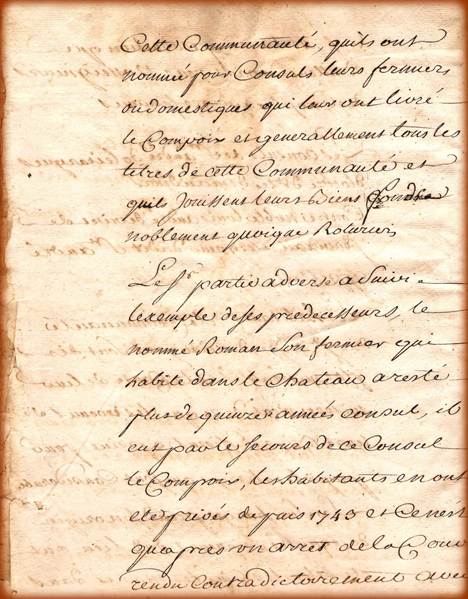 Cette Communauté, quils ont
nommé pour Consuls leurs fermiers
ou domestiques qui leur ont livré
le Compoix et generallement tous les
titres de cette Communauté et
quil Jouissent leurs biens
noblement quoique Roturiers
Le Sr partie adverse a Suivi
lexemple de ses predecesseurs, le
nommé Roman Son fermier qui
habite dans le Chateau a resté
plus de quinze années consul, il
eut par le secours de ce Consul
le Compoix, les habitants en ont
eté privés depuis 1743 et Ce nest
qua pres un arret de la Cour
rendu Contradictoirement avec